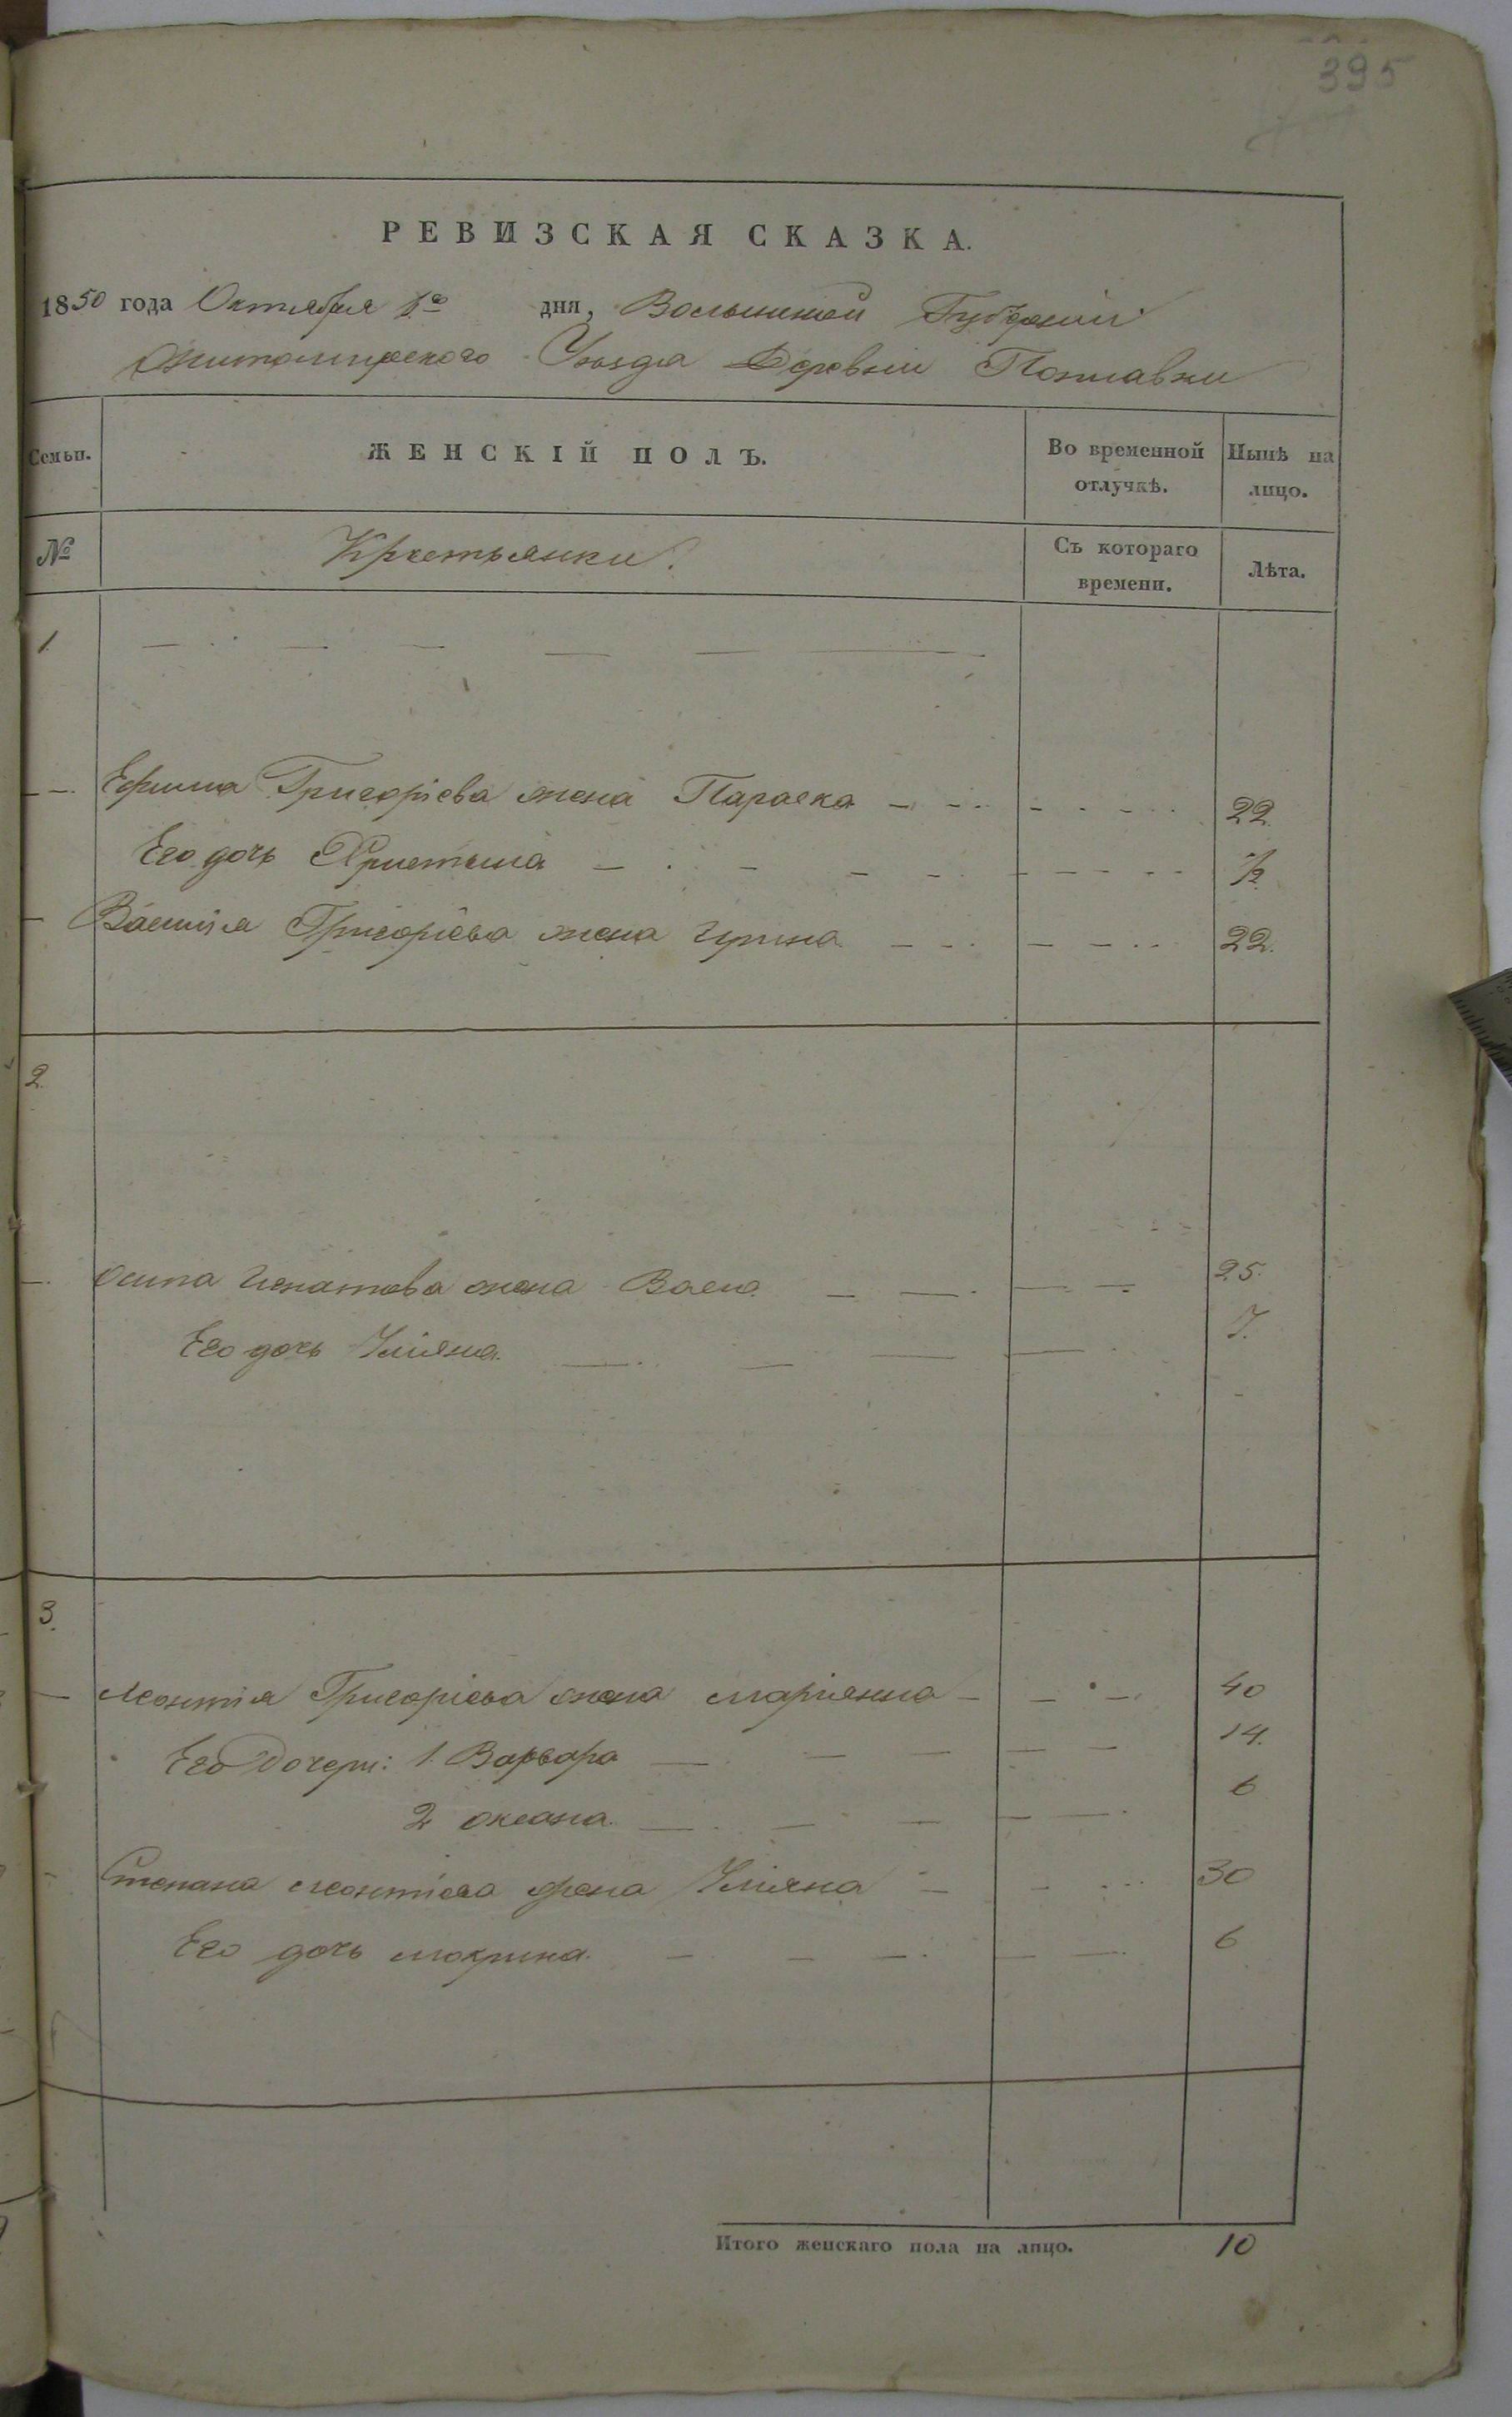 395
РЕВИЗСКАЯ СКАЗКА.
1850 года Октября 1го дня, Волынской Губерніи
Житомирского Уѣзда Деревни
Семьи. ЖЕНСКІЙ ПОЛЪ. Во временной отлучкѣ. Нынѣ на лицо.
№ Крестьянки. Съ котораго времени. Лѣта.
1
Ефима Григоріева жена Параска 22
Его дочь Христина ½
Василія Григоріева жена Ирина 22.
2.
Осипа Игнатова жена 25.
Его дочь Уліяна. 7.
3.
Леонтія Григоріева жена Маріянна 40
Его Дочери: 1. Варвара 14.
2 Оксана 6
Степана Леонтіева жена Уліяна 30
Его дочь Мокрина 6
Итого женскаго пола на лицо. 10